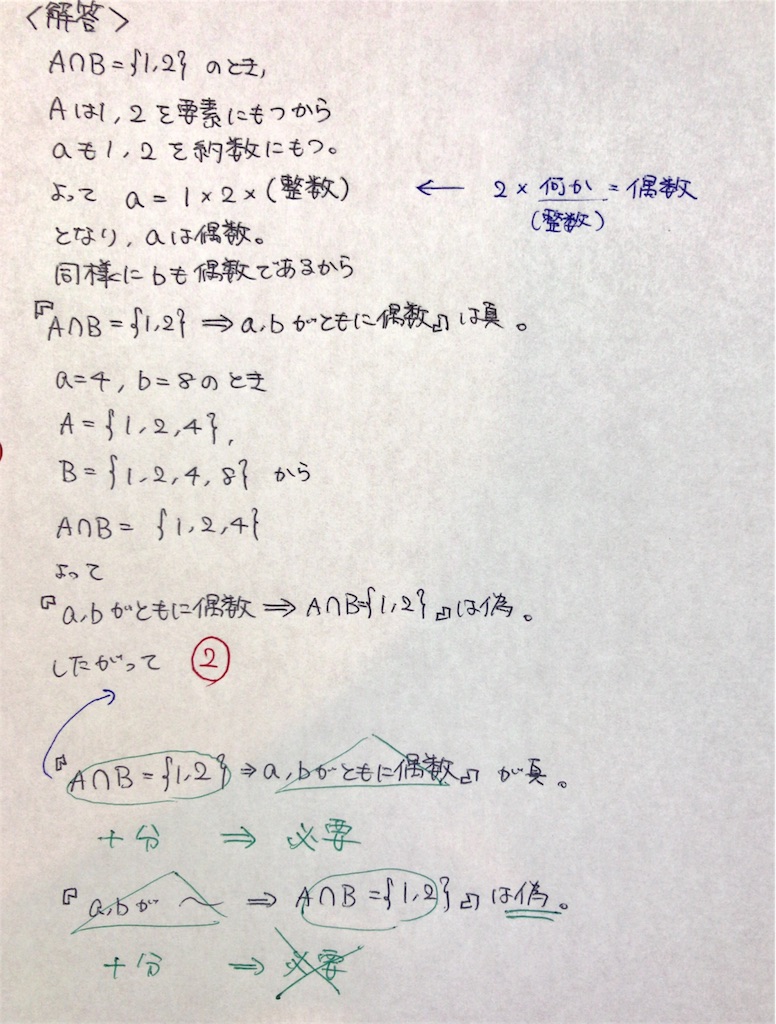 〈解答〉
A∩B={1,2} のとき,
Aは1,2を要素にもつから
aも1,2を約数にもつ。
よって a=1×2×(整数) ← 2×何か=偶数
(整数)
となり,aは偶数。
同様にbも偶数であるから
『A∩B={1,2} ⇒ a,bがともに偶数』は真。
a=4, b=8のとき
A={1,2,4},
B={1,2,4,8} から
A∩B= {1,2,4}
よって
『a,bがともに偶数 ⇒ A∩B={1,2}』は偽。
したがって ②
『A∩B={1,2} ⇒ a,bがともに偶数』が真。
十分 ⇒ 必要
『a,bが 〜 ⇒ A∩B={1,2}』は偽。
十分 ⇒ 必要